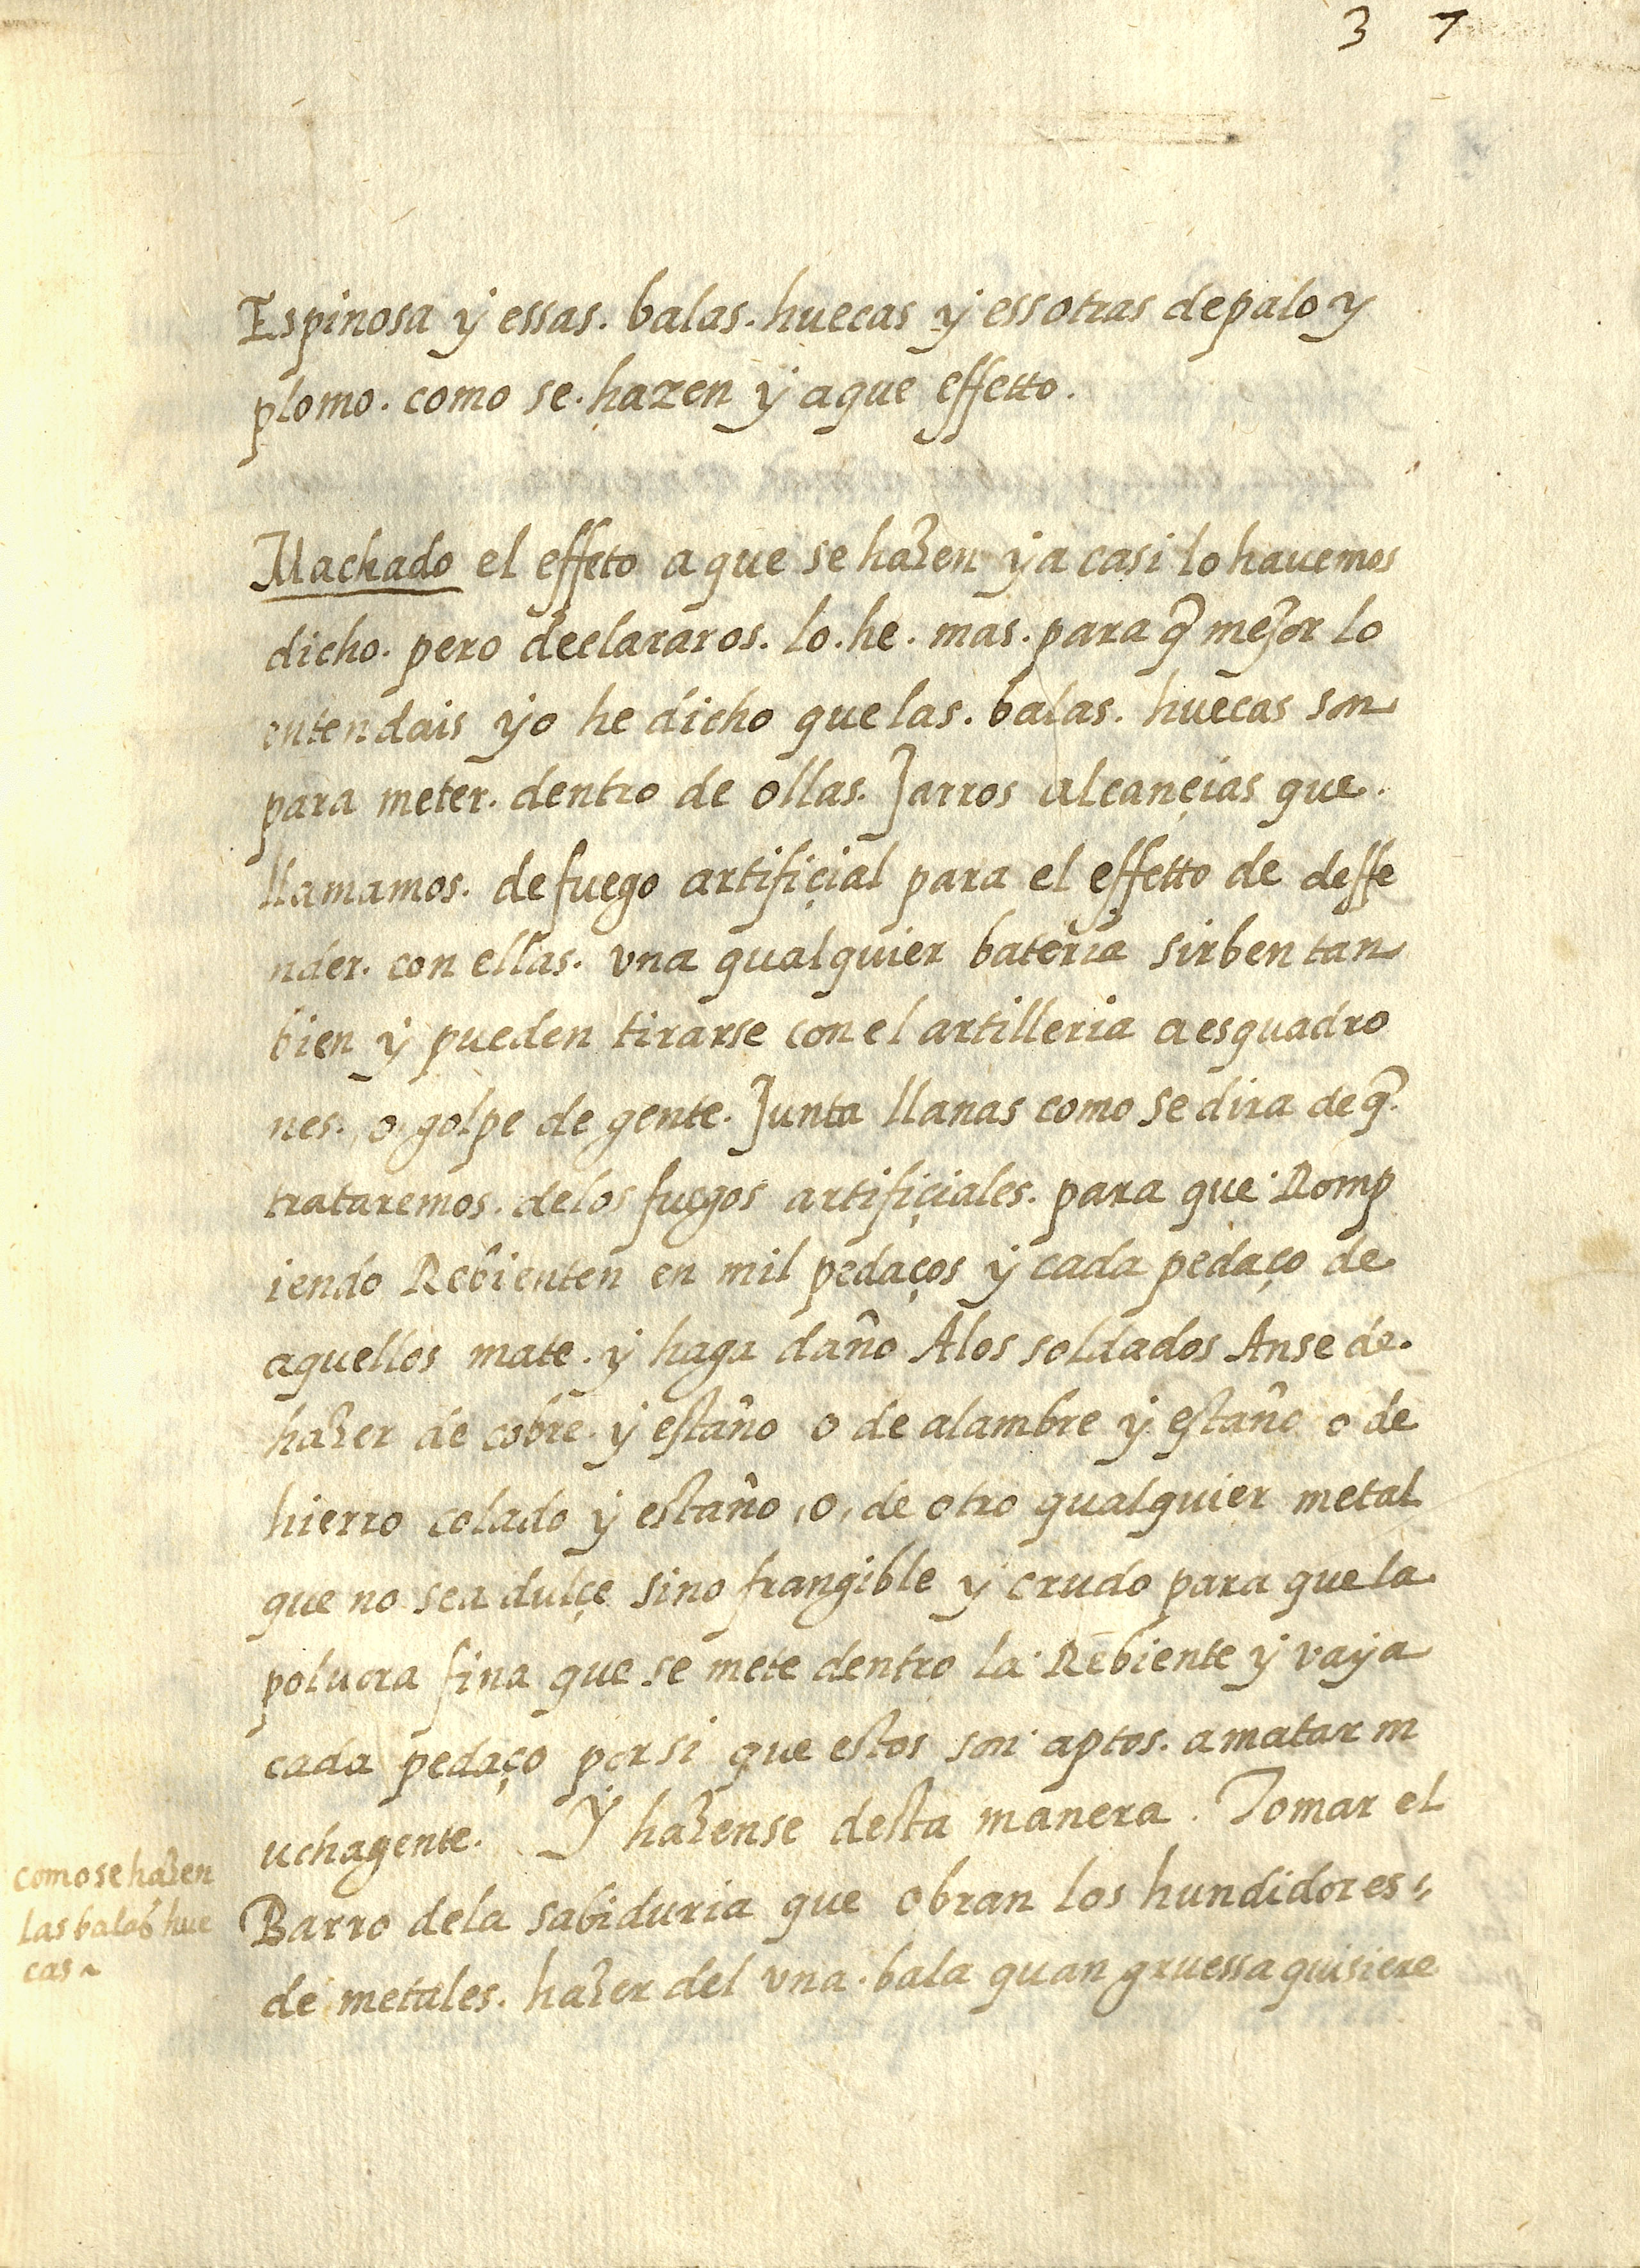 3 7
Espinosa y essas. balas. huecas y essotras de palo y
plomo. como se. hazen y a que effetto.
Machado el effeto a que se hazen ya casi lo hauemos
dicho. pero declararos. lo. he. mas. para q̃ mejor lo
entendais yo he dicho que las. balas. huecas son
para meter. dentro de ollas. Jarros alcançias que.
llamamos. de fuego artifiçial para el effetto de deffe
nder. con ellas. vna qualquier bateria sirben tan
bien y pueden tirarse con el artilleria a esquadro
nes. o golpe de gente. Junta llanas como se dira de q̃.
trataremos. delos fuegos artifiçiales. para que Romp
iendo Rebienten en mil pedaços y cada pedaço de
aquellos mate. y haga daño Alos soldados Anse de.
hazer de cobre. y estaño o de alambre y estaño o de
hierro colado y estaño, o, de otro qualquier metal
que no sea dulçe sino frangible y crudo para que la
poluora fina que se mete dentro la Rebiente y vaya
cada pedaço por si que estos son aptos. a matar m
uchagente. Y hazense desta manera. Tomar el
como se hazen
las balas hue
cas~
Barro dela sabiduria que obran los hundidores
de metales. hazer del vna. bala quan gruessa quisiere